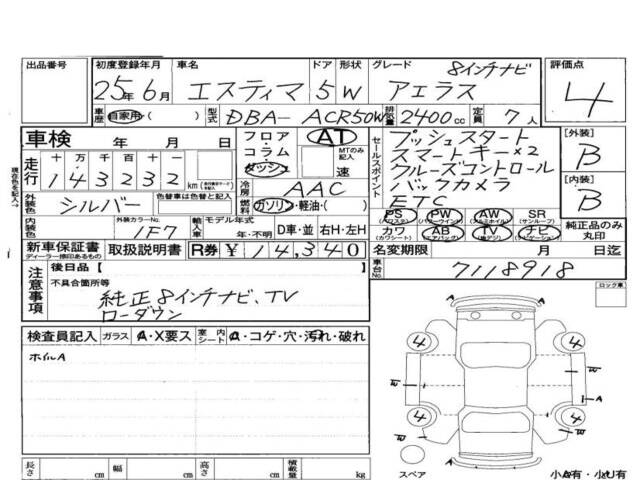 出品番号 初度登録年月 車名 ドア 形状 グレード 8インチナビ 評価点
25年6月 エスティマ 5 W アエラス 4
車歴 自家用・( ) 型式 DBA- ACR50W 排気量 2400cc 定員 7人
車検 年 月 日
フロア コラム ダッシュ AT MTのみ記入 速
走行 十万 万 千 百 十 一
1 4 3 2 3 2 km
現在色を記入→
外装色 シルバー 色替車は元色( )
冷房 AAC
燃料 ガソリン・軽油・( )
内装色 外装カラーNo. 1F7
輸入車 モデル年式 年・不明 D車・並 右H・左H
セールスポイント
プッシュスタート
スマートキー×2
クルーズコントロール
バックカメラ
ETC
[外装] B
[内装] B
PS (パワステ) PW (パワーウインド) AW (アルミホイル) SR (サンルーフ)
カワ (カワシート) AB (エアバッグ) TV (地デジ) ナビ (ナビゲーション)
純正品のみ丸印
新車保証書 ディーラー捺印あるもの 取扱説明書 R券 ¥14,340
名変期限 月 日迄
注意事項
後日品【 】
不具合箇所等
純正8インチナビ、TV
ローダウン
車台No. 7118918
ロック車
検査員記入 ガラス A・X要ス 室内シート A・コゲ・穴・汚れ・破れ
ホイルA
4 4
W W
A
4 4
スペア 小A有・小U有
長さ cm 幅 cm 高さ cm 積載量 kg